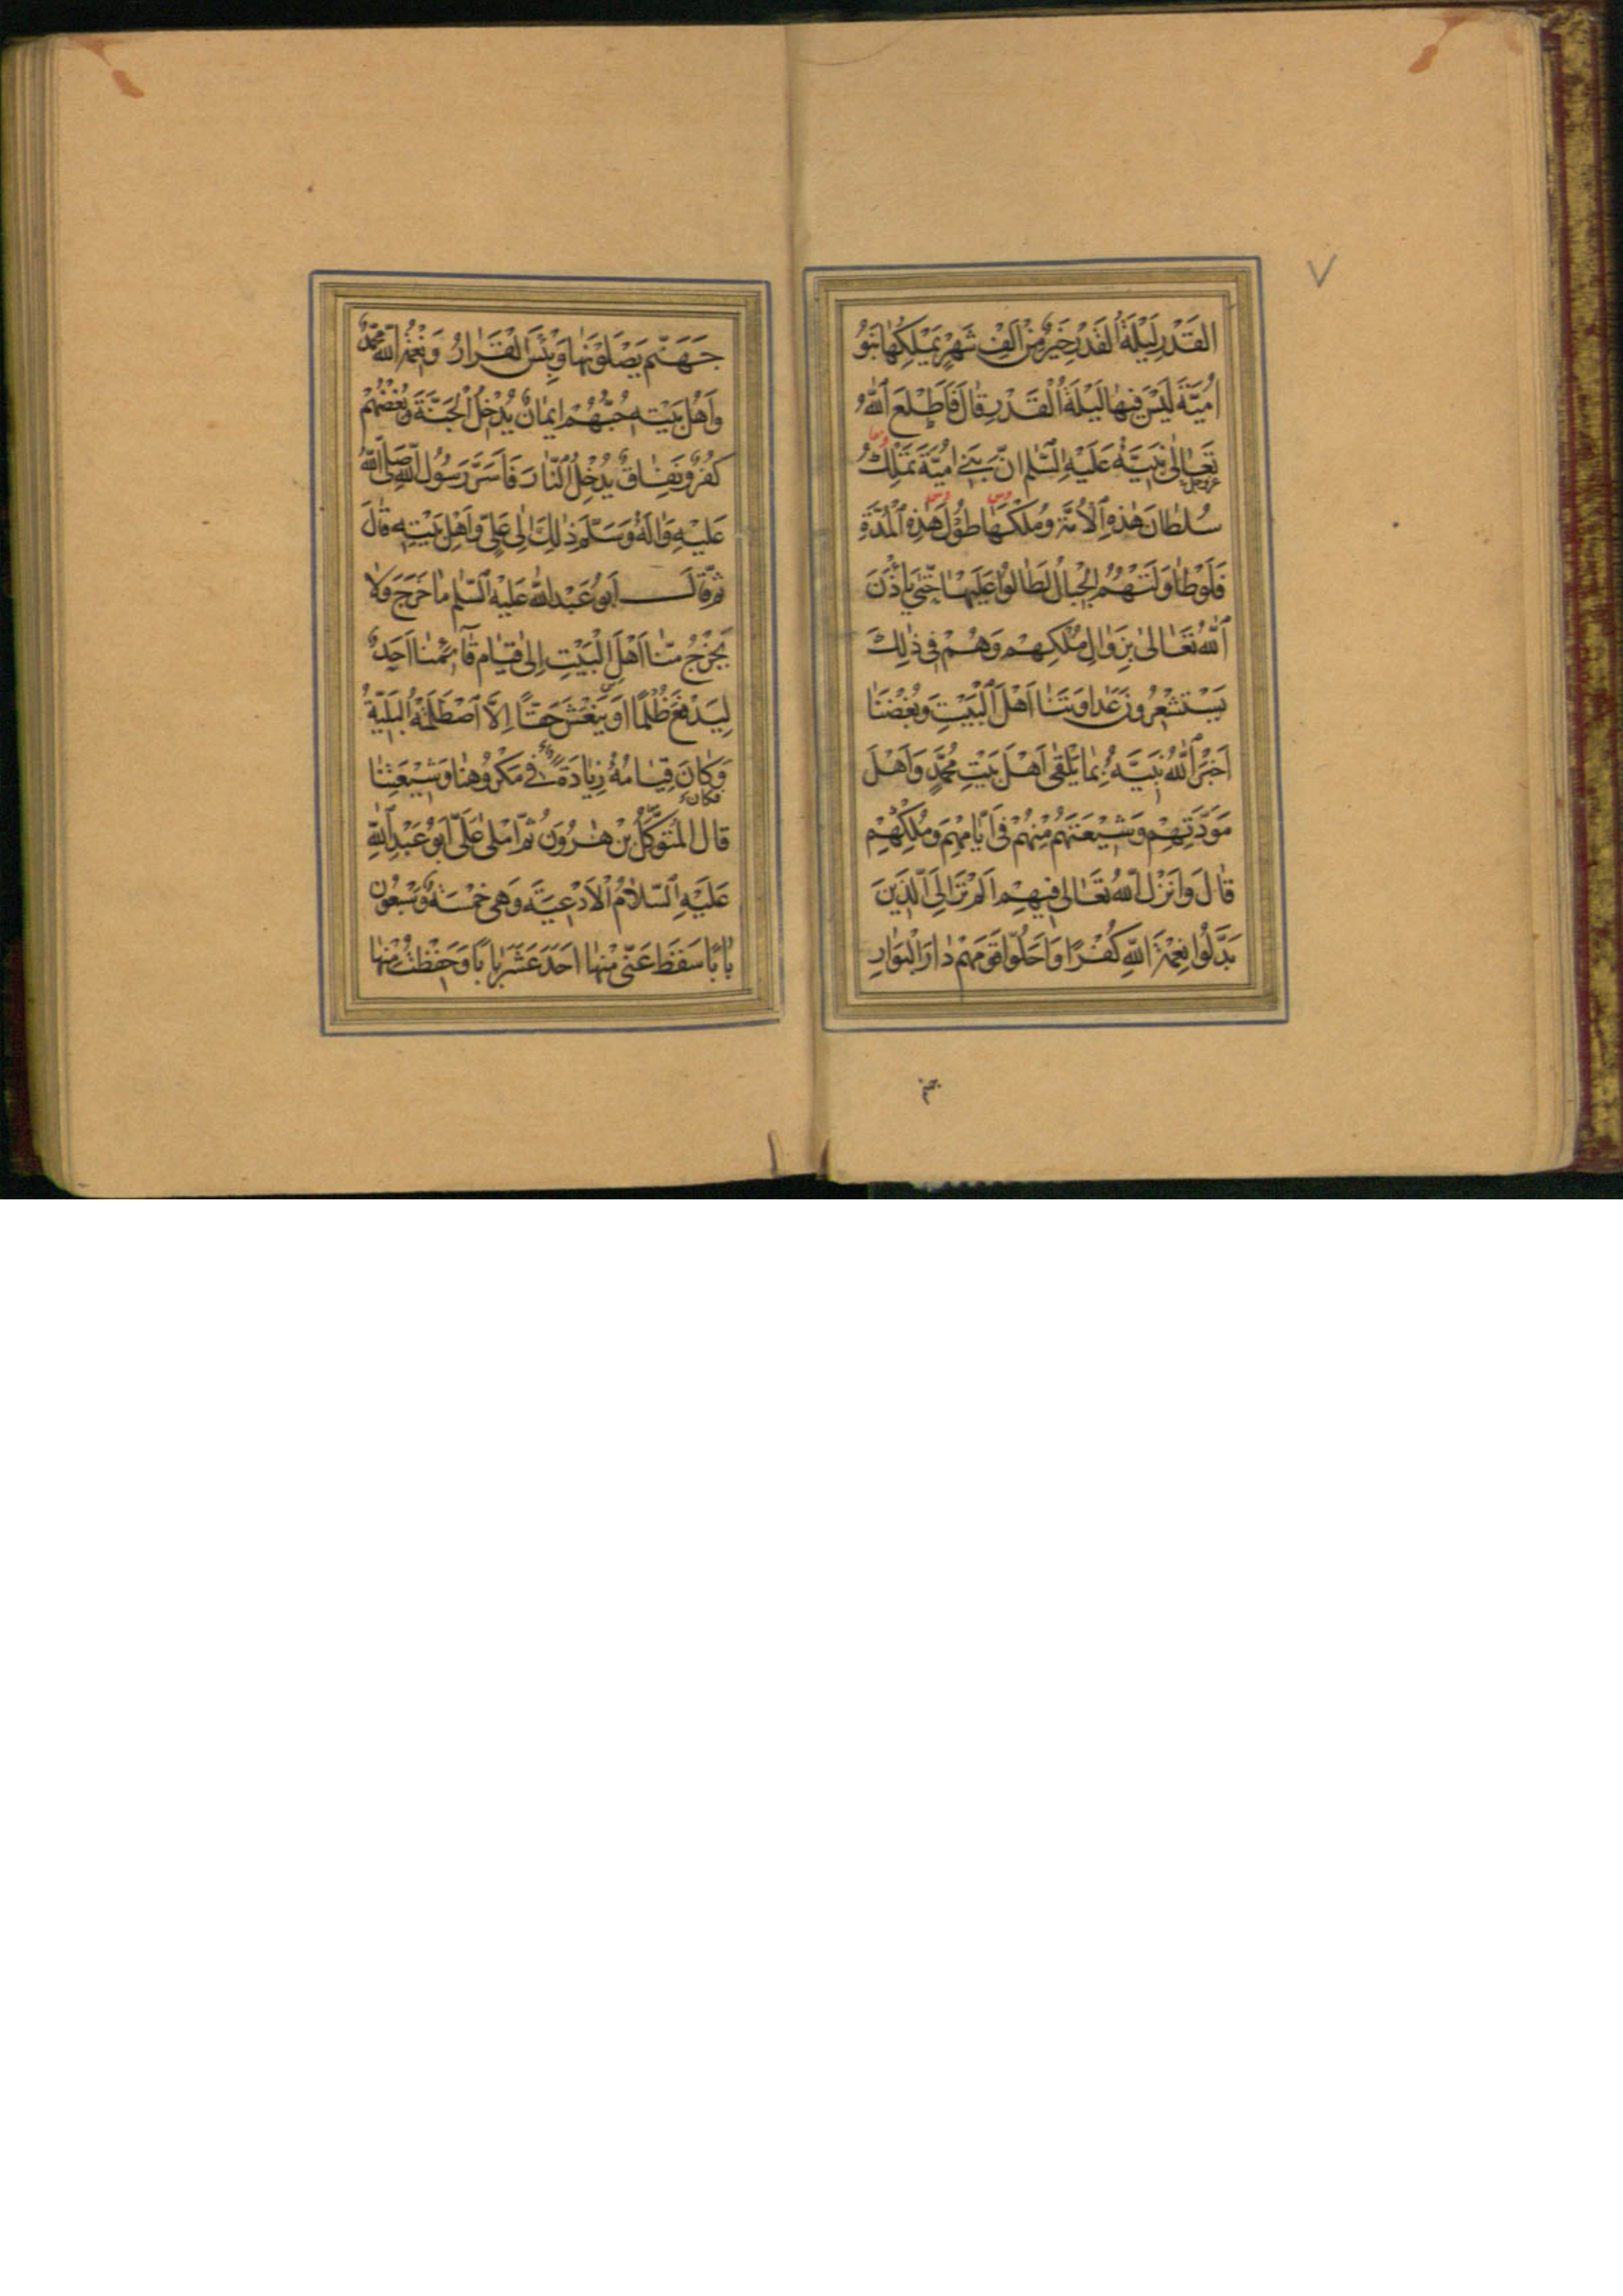 القَدْرِ لَيْلَةُ القَدْرِ خَيْرٌ مِنْ اَلْفِ شَهْرٍ يَمْلِكُهٰا بَنُو
اُمَيَّةَ لَيْسَ فيهٰا لَيْلَةُ الْقَدْرِ قٰالَ فَاَطْلَعَ اللّٰهُ
تَعٰالىٰ نَبِيَّهُ عَلَيْهِ السَّلٰم اِنَّ بَنِي اُمَيَّةَ تَمْلِكُ
عزوجل
سُلْطٰانَ هٰذِهِ الْاُمَّةِ وَمُلْكَهٰا طُولَ هٰذِهِ الْمُدَّةِ
فَلَوْ طٰاوَلَتْهُمُ الْجِبٰالُ لَطٰالُوا عَلَيْهٰا حَتّىٰ يَأْذَنَ
اللّٰهُ تَعٰالىٰ بِزَوٰالِ مُلْكِهِمْ وَهُمْ في ذٰلِكَ
يَسْتَشْعِرُونَ عَدٰاوَتَنٰا اَهْلَ الْبَيْتِ وَبُغْضَنٰا
اَخْبَرَ اللّٰهُ نَبِيَّهُ بِمٰا يَلْقىٰ اَهْلُ بَيْتِ مُحَمَّدٍ وَاَهْلُ
مَوَدَّتِهِمْ وَشيعَتُهُمْ مِنْهُمْ في اَيّٰامِهِمْ وَمُلْكِهِمْ
قٰالَ وَاَنْزَلَ اللّٰهُ تَعٰالىٰ فيهِمْ اَلَمْ تَرَ اِلَى الَّذينَ
بَدَّلُوا نِعْمَةَ اللّٰهِ كُفْرًا وَاَحَلُّوا قَوْمَهُمْ دٰارَ الْبَوٰارِ
جَهَنَّمَ يَصْلَوْنَهٰا وَبِئْسَ الْقَرٰارُ وَنِعْمَةُ اللّٰهِ مُحَمَّدٌ
وَاَهْلُ بَيْتِهِ حُبُّهُمْ ايمٰانٌ يُدْخِلُ الْجَنَّةَ وَبُغْضُهُمْ
كُفْرٌ وَنِفٰاقٌ يُدْخِلُ النّٰارَ فَاَسَرَّ رَسُولُ اللّٰهِ صَلَّى اللّٰهُ
عَلَيْهِ وَاٰلِهِ وَسَلَّمَ ذٰلِكَ اِلىٰ عَلِيٍّ وَاَهْلِ بَيْتِهِ قٰالَ
ثُمَّ قٰالَ اَبُو عَبْدِ اللّٰهِ عَلَيْهِ السَّلٰم مٰا خَرَجَ وَلاٰ
يَخْرُجُ مِنّٰا اَهْلَ الْبَيْتِ اِلىٰ قِيٰامِ قٰآئِمِنٰا اَحَدٌ
لِيَدْفَعَ ظُلْمًا اَوْ يَنْعَشَ حَقًّا اِلَّا اصْطَلَمَتْهُ الْبَلِيَّةُ
وَكٰانَ قِيٰامُهُ زِيٰادَةً في مَكْرُوهِنٰا وَشيعَتِنٰا
فكان
قٰالَ الْمُتَوَكِّلُ بْنُ هٰرُونَ ثُمَّ اَمْلىٰ عَلَيَّ اَبُو عَبْدِ اللّٰهِ
عَلَيْهِ السَّلاٰمُ الْاَدْعِيَةَ وَهِيَ خَمْسَةٌ وَسَبْعُونَ
بٰابًا سَقَطَ عَنّي مِنْهٰا اَحَدَ عَشَرَ بٰابًا وَحَفِظْتُ مِنْهٰا